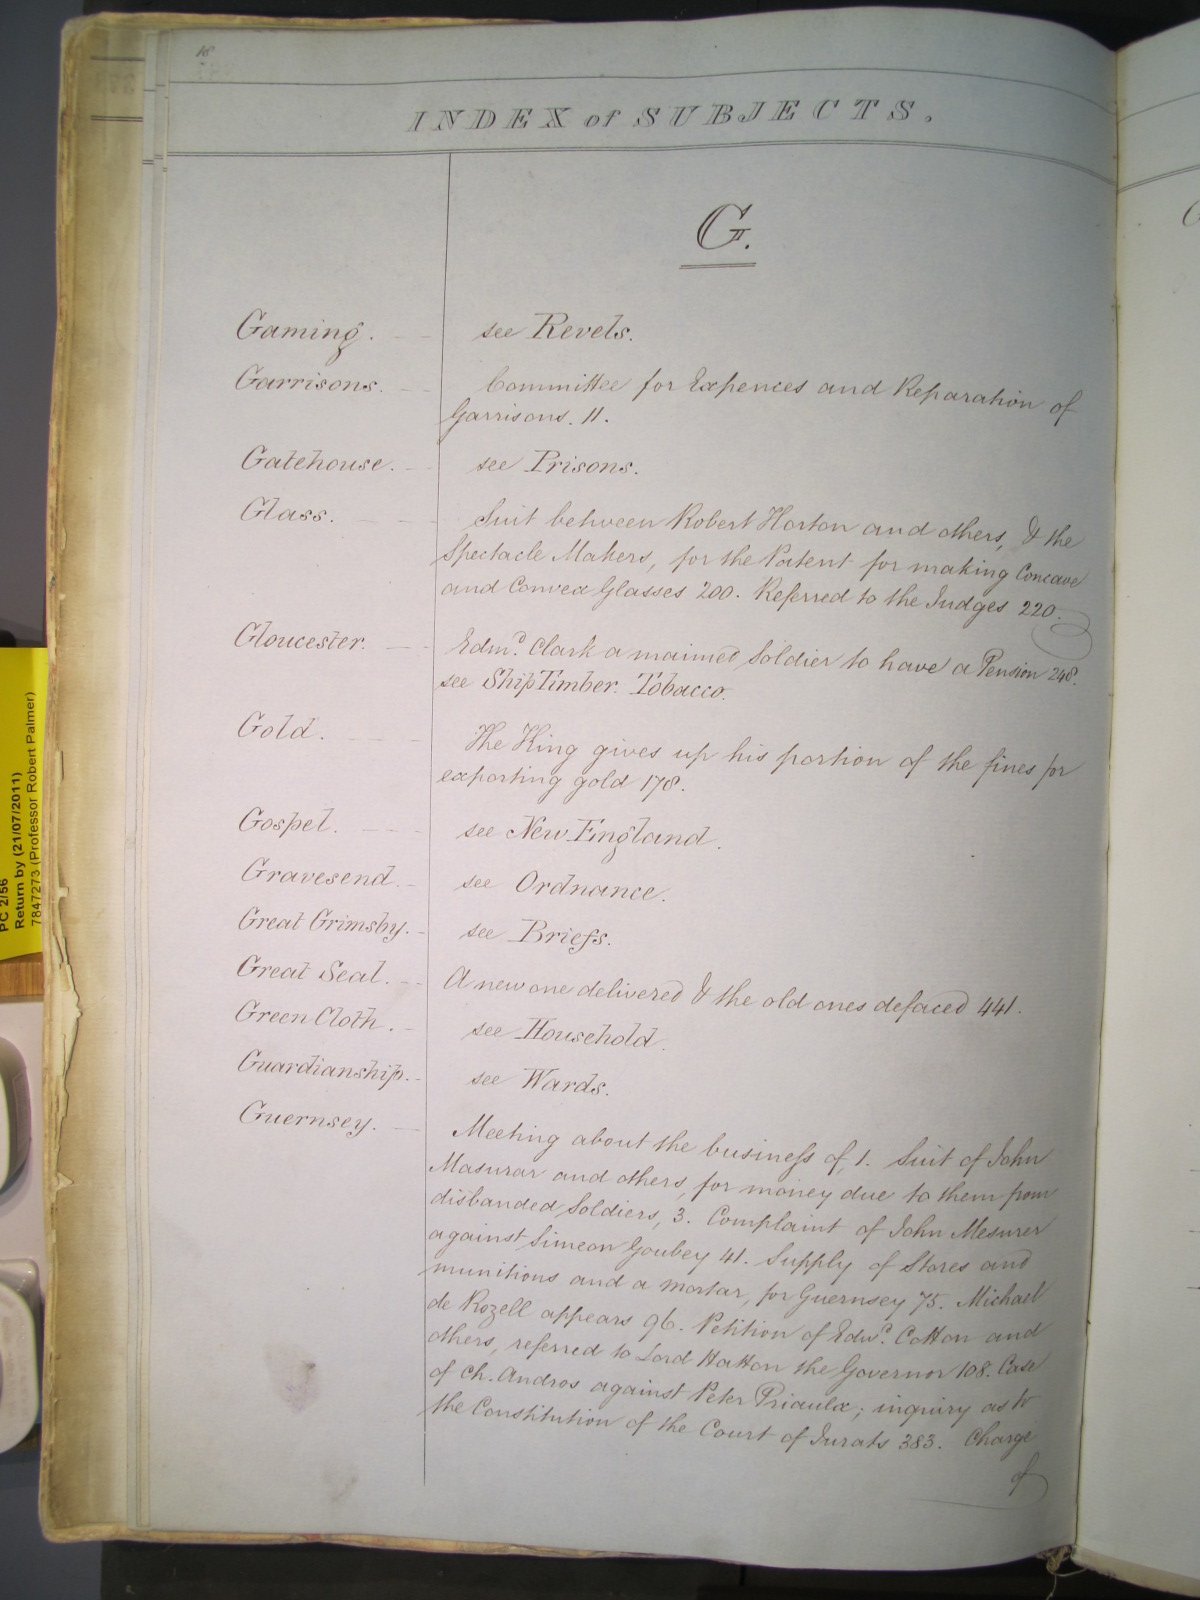 18
INDEX of SUBJECTS.
G.
Gaming. see Revels.
Garrisons. Committee for Expences and Reparation of
Garrisons. 11.
Gatehouse. see Prisons.
Glass. Suit between Robert Horton and others, & the
Spectacle Makers, for the Patent for making Concave
and Convex Glasses 200. Referred to the Judges 220.
Gloucester. Edmd. Clark a maimed Soldier to have a Pension 248.
see Ship Timber. Tobacco.
Gold. The King gives up his portion of the fines for
exporting gold 178.
Gospel. see New England.
Gravesend. see Ordnance.
Great Grimsby. see Briefs.
Great Seal. A new one delivered & the old ones defaced 441.
Green Cloth. see Household.
Guardianship. see Wards.
Guernsey. Meeting about the business of, 1. Suit of John
Masurar and others, for money due to them from
disbanded Soldiers, 3. Complaint of John Mesurer
against Simeon Goubey 41. Supply of Stores and
munitions and a mortar, for Guernsey 75. Michael
de Rozell appears 96. Petition of Edwd. Cotton and
others, referred to Lord Hatton the Governor 108. Case
of Ch. Andros against Peter Priaulx; inquiry as to
the Constitution of the Court of Jurats 383. Charge
of
PC 2/56
Return by (21/07/2011)
7847273 (Professor Robert Palmer)